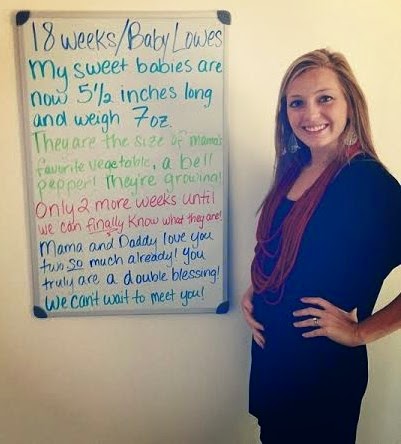 18 weeks/Baby Lowes
My sweet babies are
now 5½ inches long
and weigh 7oz.
They are the size of mama's
favorite vegetable, a bell
pepper! They're growing!
Only 2 more weeks until
we can finally know what they are!
Mama and Daddy love you
two so much already! You
truly are a double blessing!
We can't wait to meet you!